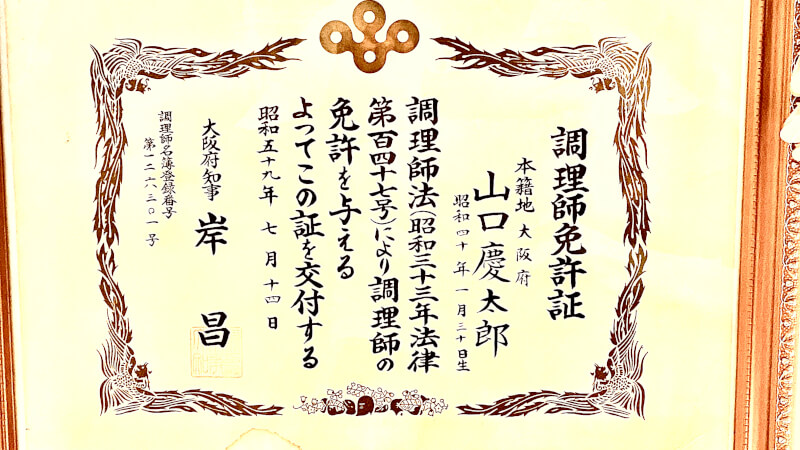 調理師免許証
本籍地 大阪府
山口慶太郎
昭和四十年一月三十日生
調理師法(昭和三十三年法律
第百四十七号)により調理師の
免許を与える
よってこの証を交付する
昭和五十九年 七月十四日
大阪府知事 岸 昌
調理師名簿登録番号
第一二六三〇一号